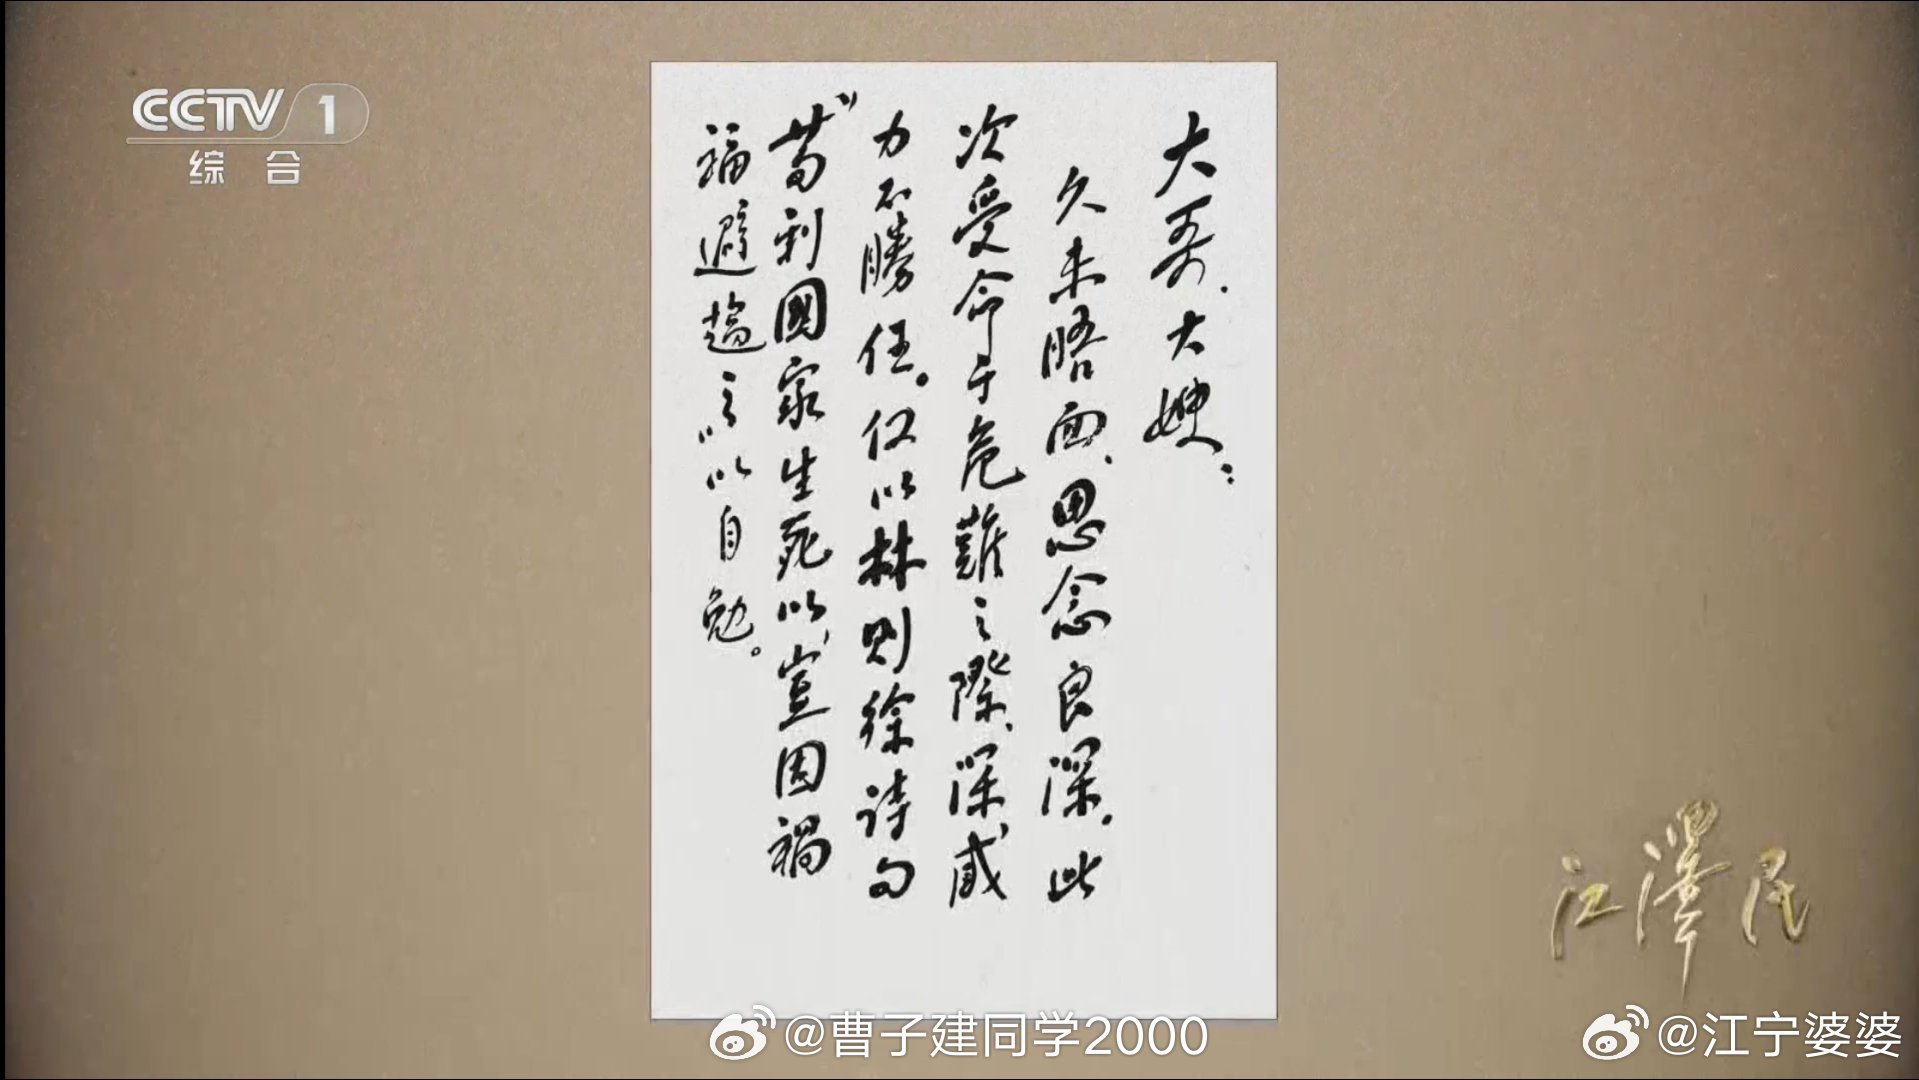 CCTV 1
综合
大哥、大嫂：
久未晤面，思念良深。此
次受命于危难之際，深感
力不勝任。仅以林则徐诗句
“苟利國家生死以，豈因禍
福避趨之”以自勉。
江澤民
@曹子建同学2000
@江宁婆婆